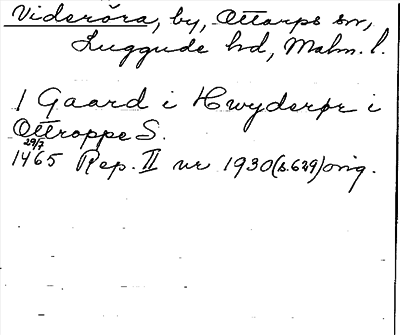 Videröra, by, Ottarps sn,
Luggude hd, Malm. l.
1 Gaard i Hwyderpr i
Ottroppe S.
29/7
1465 Rep. II nr 1930 (s. 629) orig.